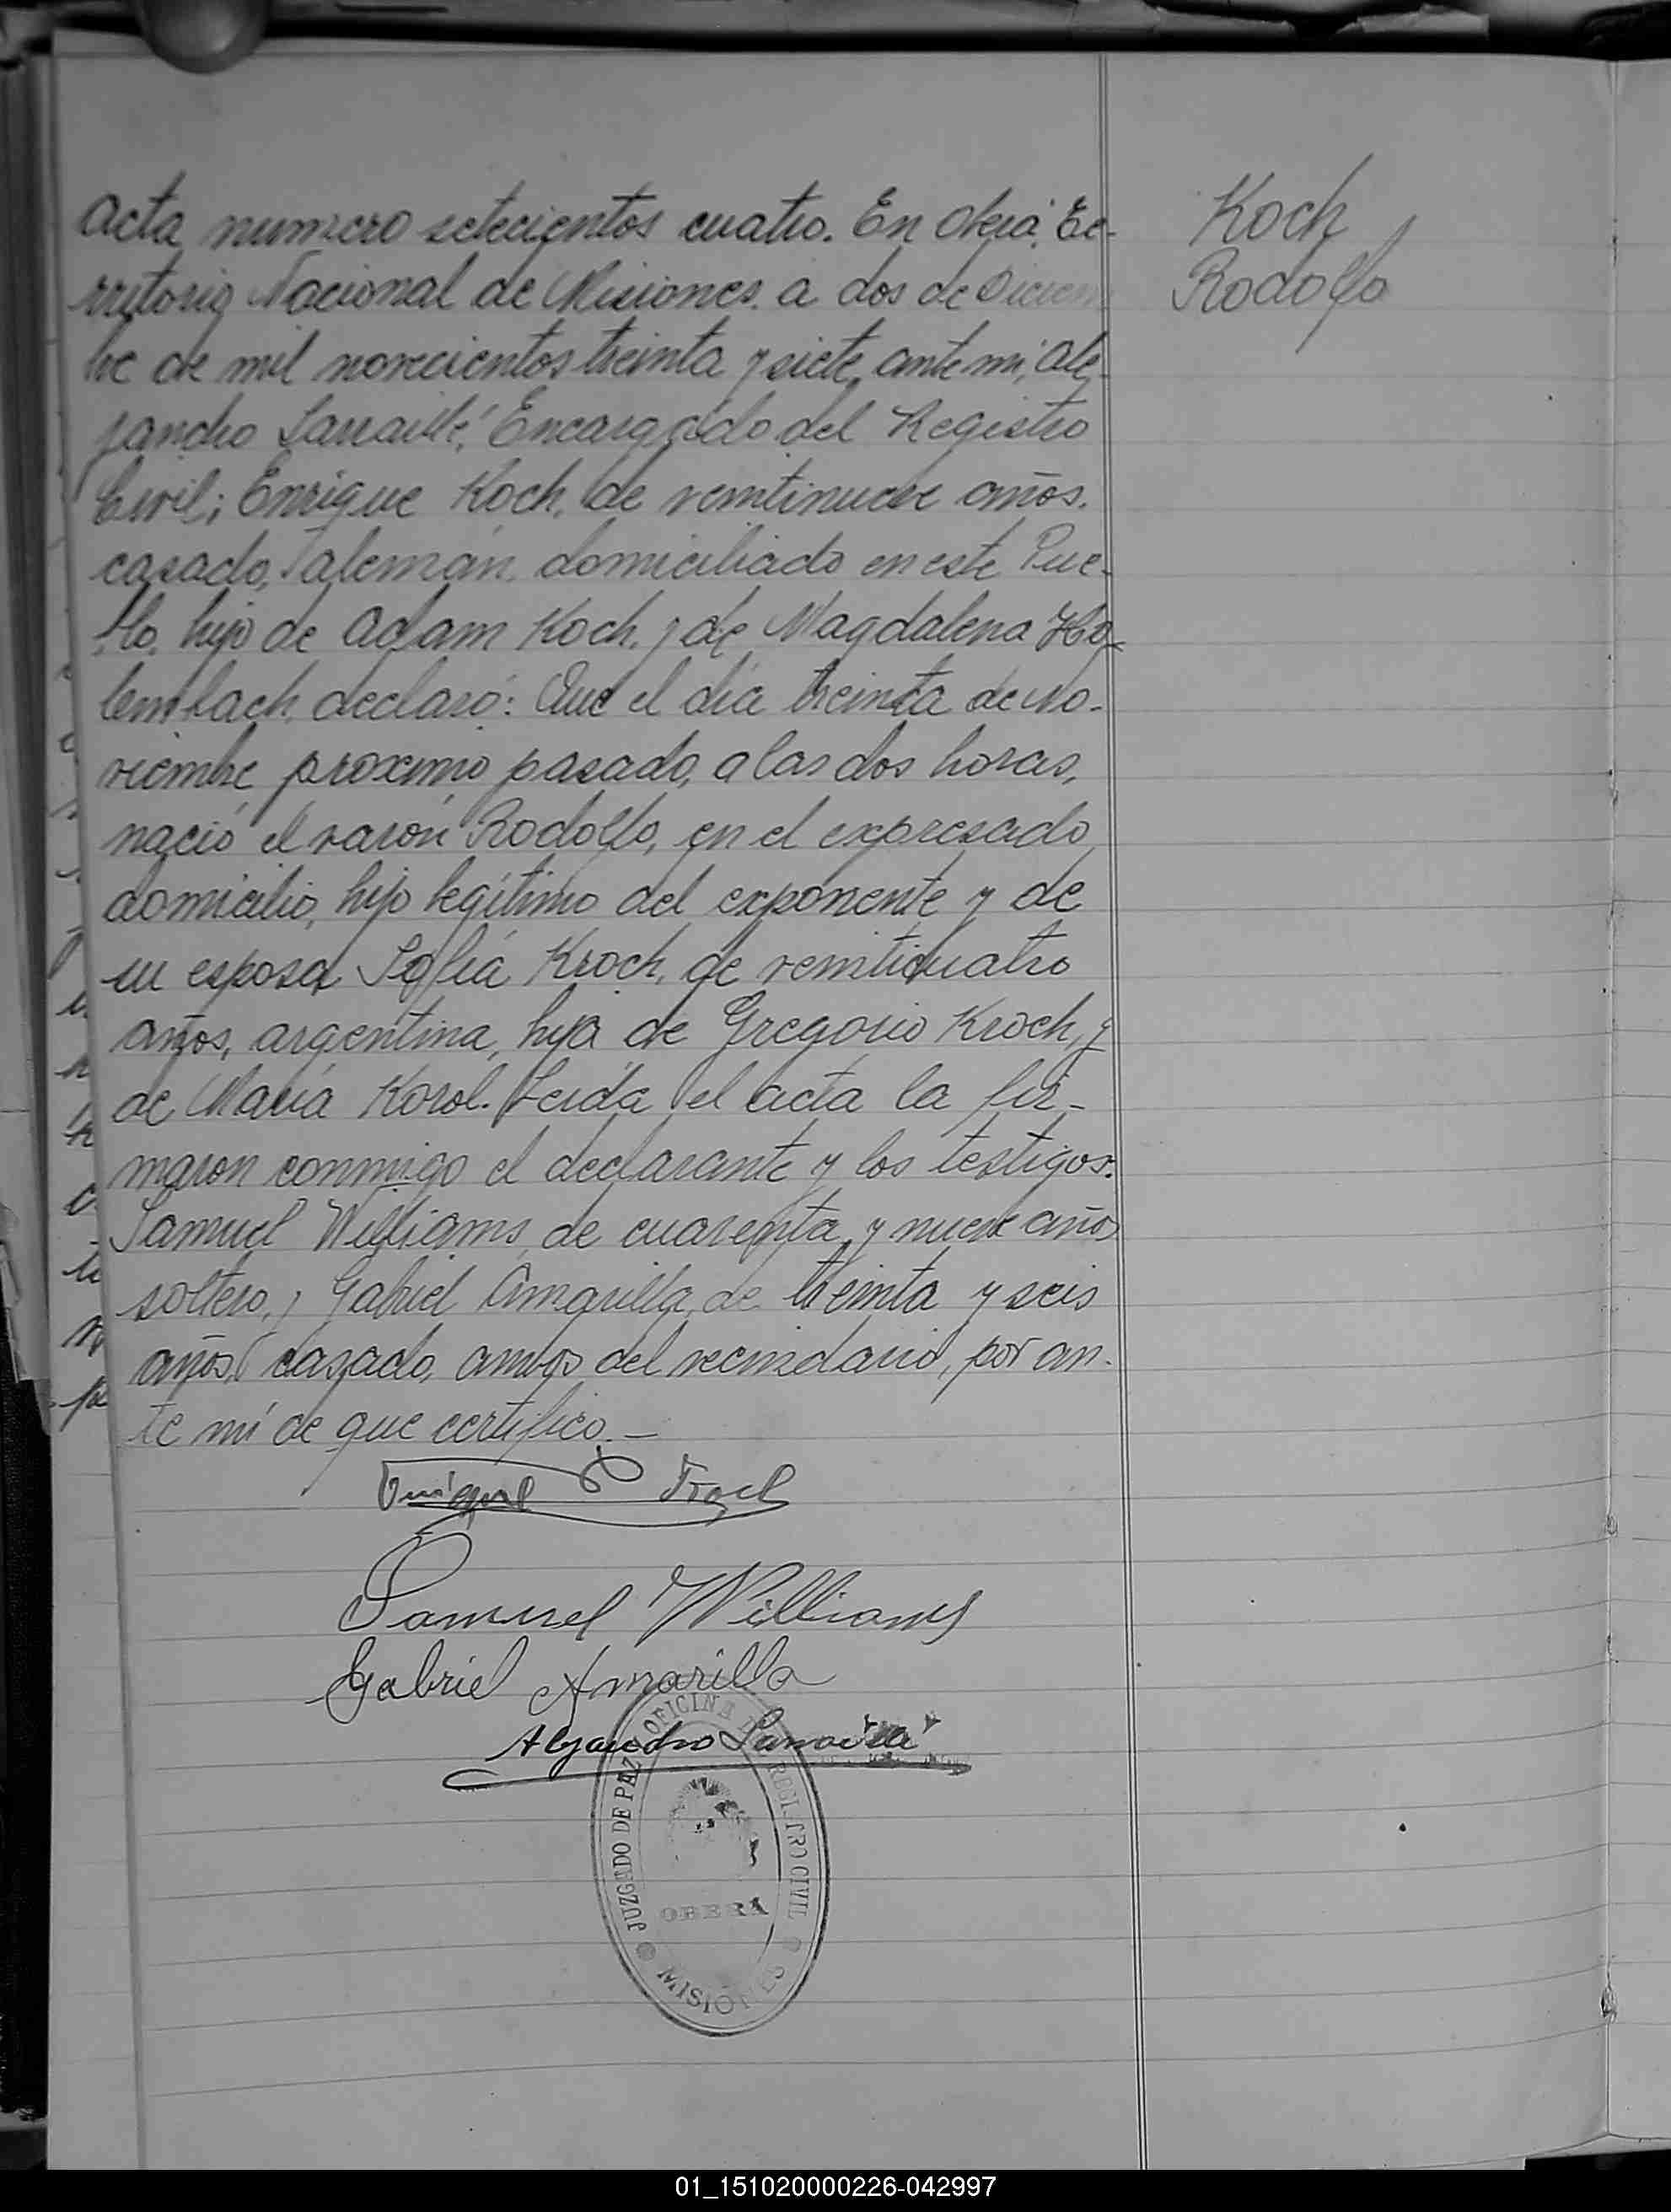 Koch
Rodolfo
Acta numero setecientos cuatro. En Oberá, Te-
rritorio Nacional de Misiones, a dos de Diciem
bre de mil novecientos treinta y siete, ante mi, Ale-
jandro Sarraillé, Encargado del Registro
Civil; Enrique Koch, de veintinueve años,
casado, alemán, domiciliado en este Pue-
blo, hijo de Adam Koch, y de Magdalena Ho-
lembach, declaró: Que el día treinta de No-
viembre proximo pasado, a las dos horas,
nació el varón Rodolfo, en el expresado
domicilio, hijo legítimo del exponente y de
su esposa Sofía Kroch, de veinticuatro
años, argentina, hija de Gregorio Kroch, y
de María Korol. Leída el acta la fir-
maron conmigo el declarante y los testigos:
Samuel Williams, de cuarenta y nueve años
soltero, y Gabriel Amarilla, de treinta y seis
años, casado, ambos del vecindario, por an-
te mí de que certifico.—
Samuel Williams
Gabriel Amarilla
Alejandro Sarraillé
JUZGADO DE PAZ OFICINA DEL REGISTRO CIVIL
OBERÁ
MISIONES
01_151020000226-042997